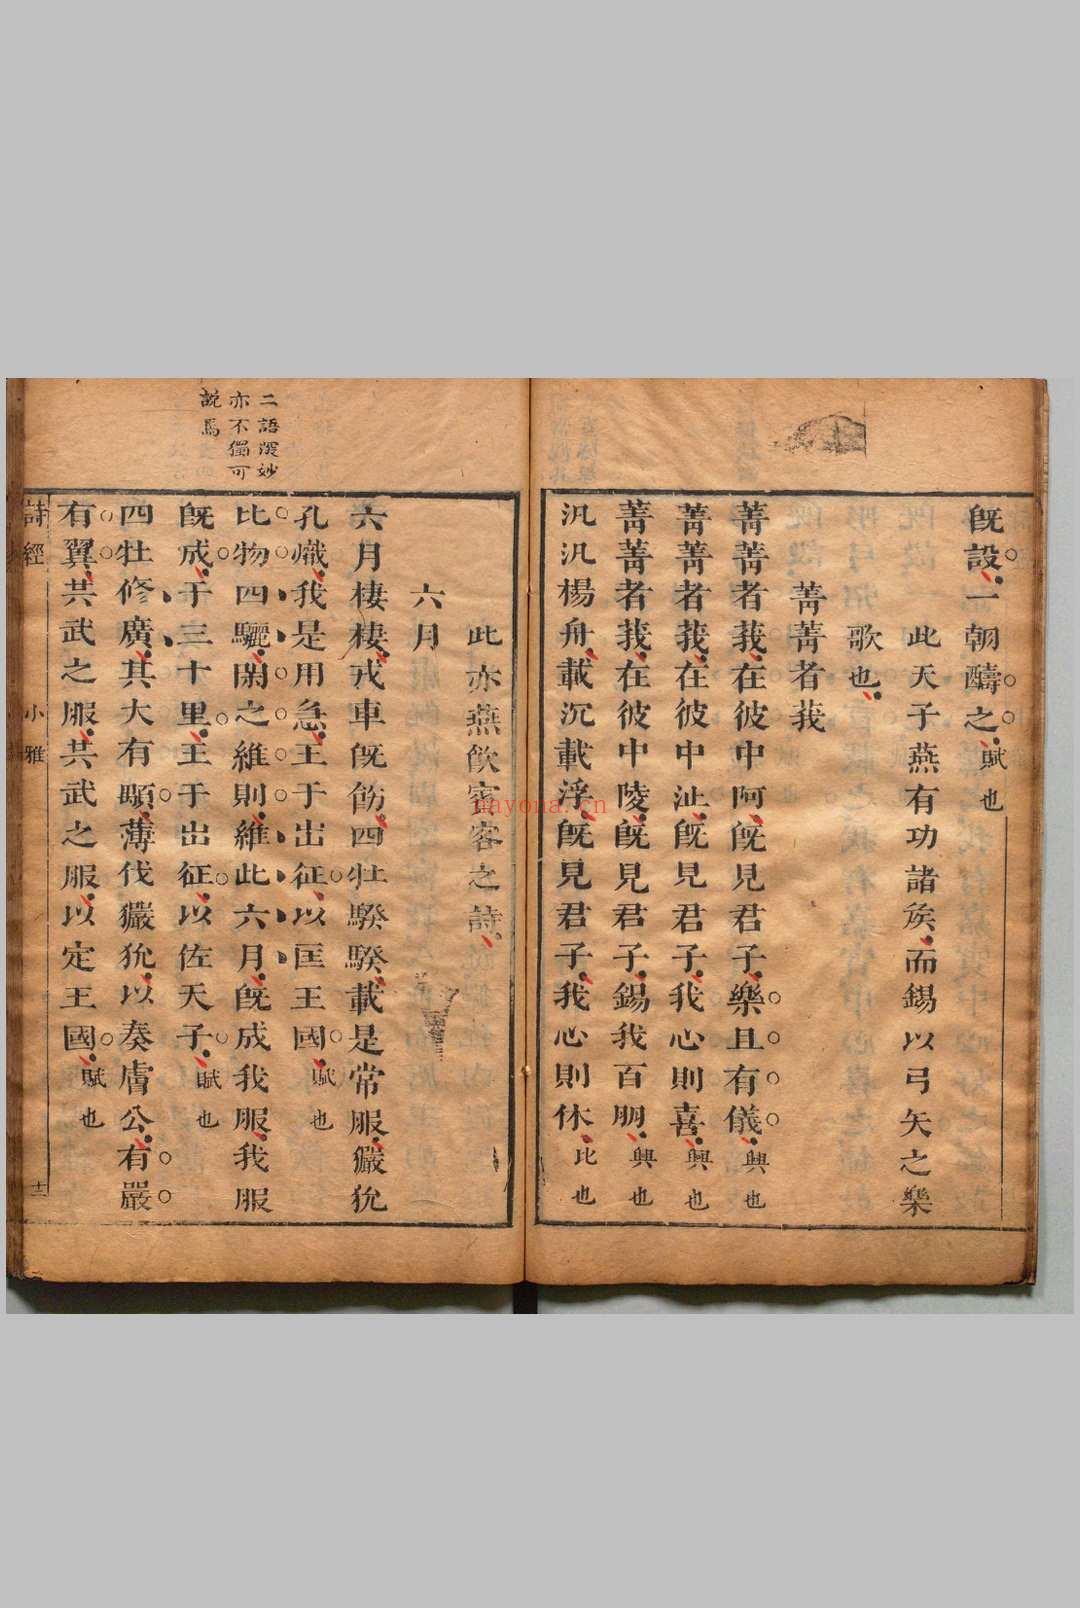 旣設一朝醻之賦也
此天子燕有功諸矦而錫以弓矢之樂
歌也
菁菁者莪
菁菁者莪在彼中阿旣見君子樂且有儀興也
菁菁者莪在彼中沚旣見君子我心則喜興也
菁菁者莪在彼中陵旣見君子錫我百朋興也
汎汎楊舟載沉載浮旣見君子我心則休比也
此亦燕飲賓客之詩
六月
六月棲棲戎車旣飭四牡騤騤載是常服玁狁
孔熾我是用急王于出征以匡王國賦也
比物四驪閑之維則維此六月旣成我服我服
旣成于三十里王于出征以佐天子賦也
四牡修廣其大有顒薄伐玁狁以奏膚公有嚴
有翼共武之服共武之服以定王國賦也
二語深妙
亦不獨可
說馬
詩經
小雅
十二
nayona.cn